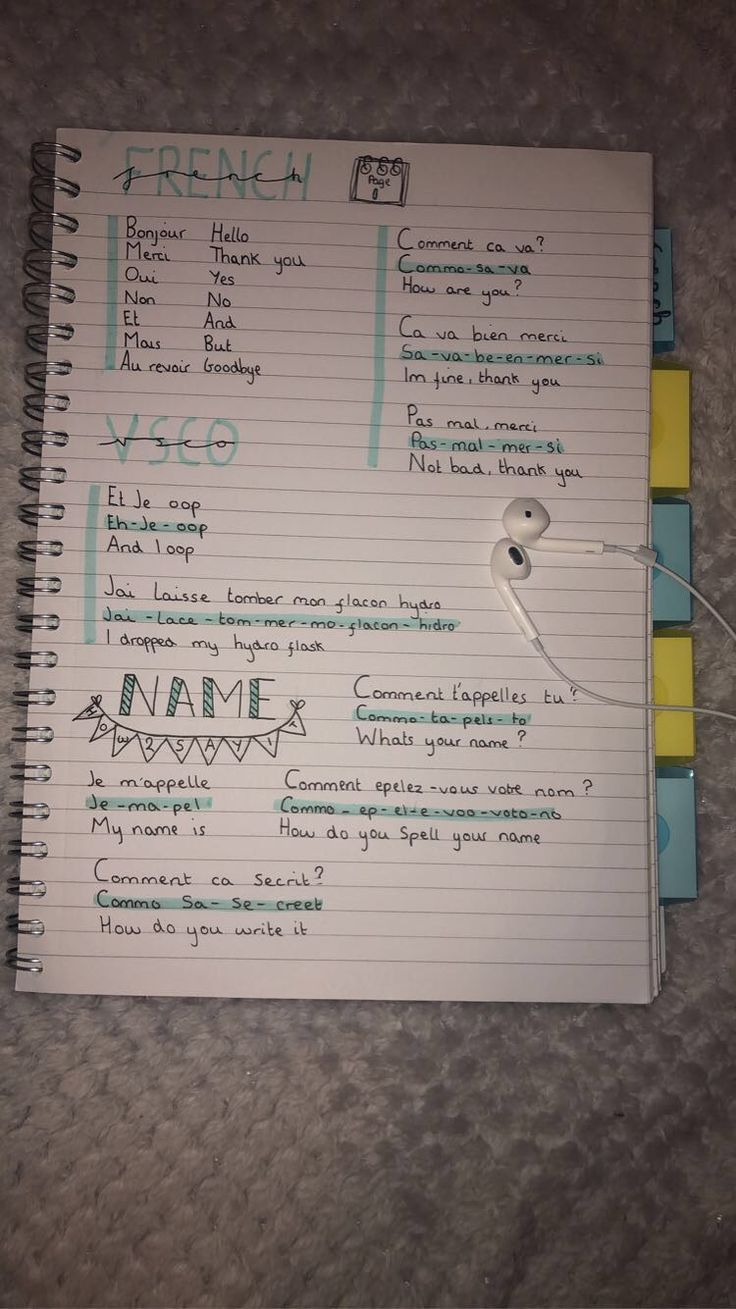 FRENCH
french
Page
1
Bonjour Hello
Merci Thank you
Oui Yes
Non No
Et And
Mais But
Au revoir Goodbye
Comment ca va?
Commo-sa-va
How are you?
Ca va bien merci
Sa-va-be-en-mer-si
Im fine, thank you
Pas mal, merci
Pas-mal-mer-si
Not bad, thank you
VSCO
vsco
Et Je oop
Eh-Je-oop
And I oop
Jai laisse tomber mon flacon hydro
Jai-Lace-tom-mer-mo-flacon-hidro
I dropped my hydro flask
NAME
HOW 2 SAY IT
Comment t'appelles tu?
Commo-ta-pels-to
Whats your name?
Je m'appelle
Je-ma-pel
My name is
Comment epelez-vous votre nom?
Commo-ep-el-e-voo-voto-no
How do you Spell your name
Comment ca Secrit?
Commo Sa-Se-creet
How do you write it